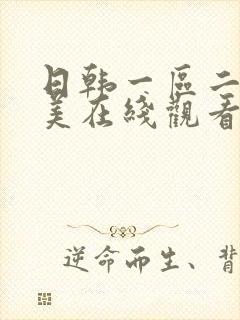 日韩一區二
美在綫觀看
逆命而生、背